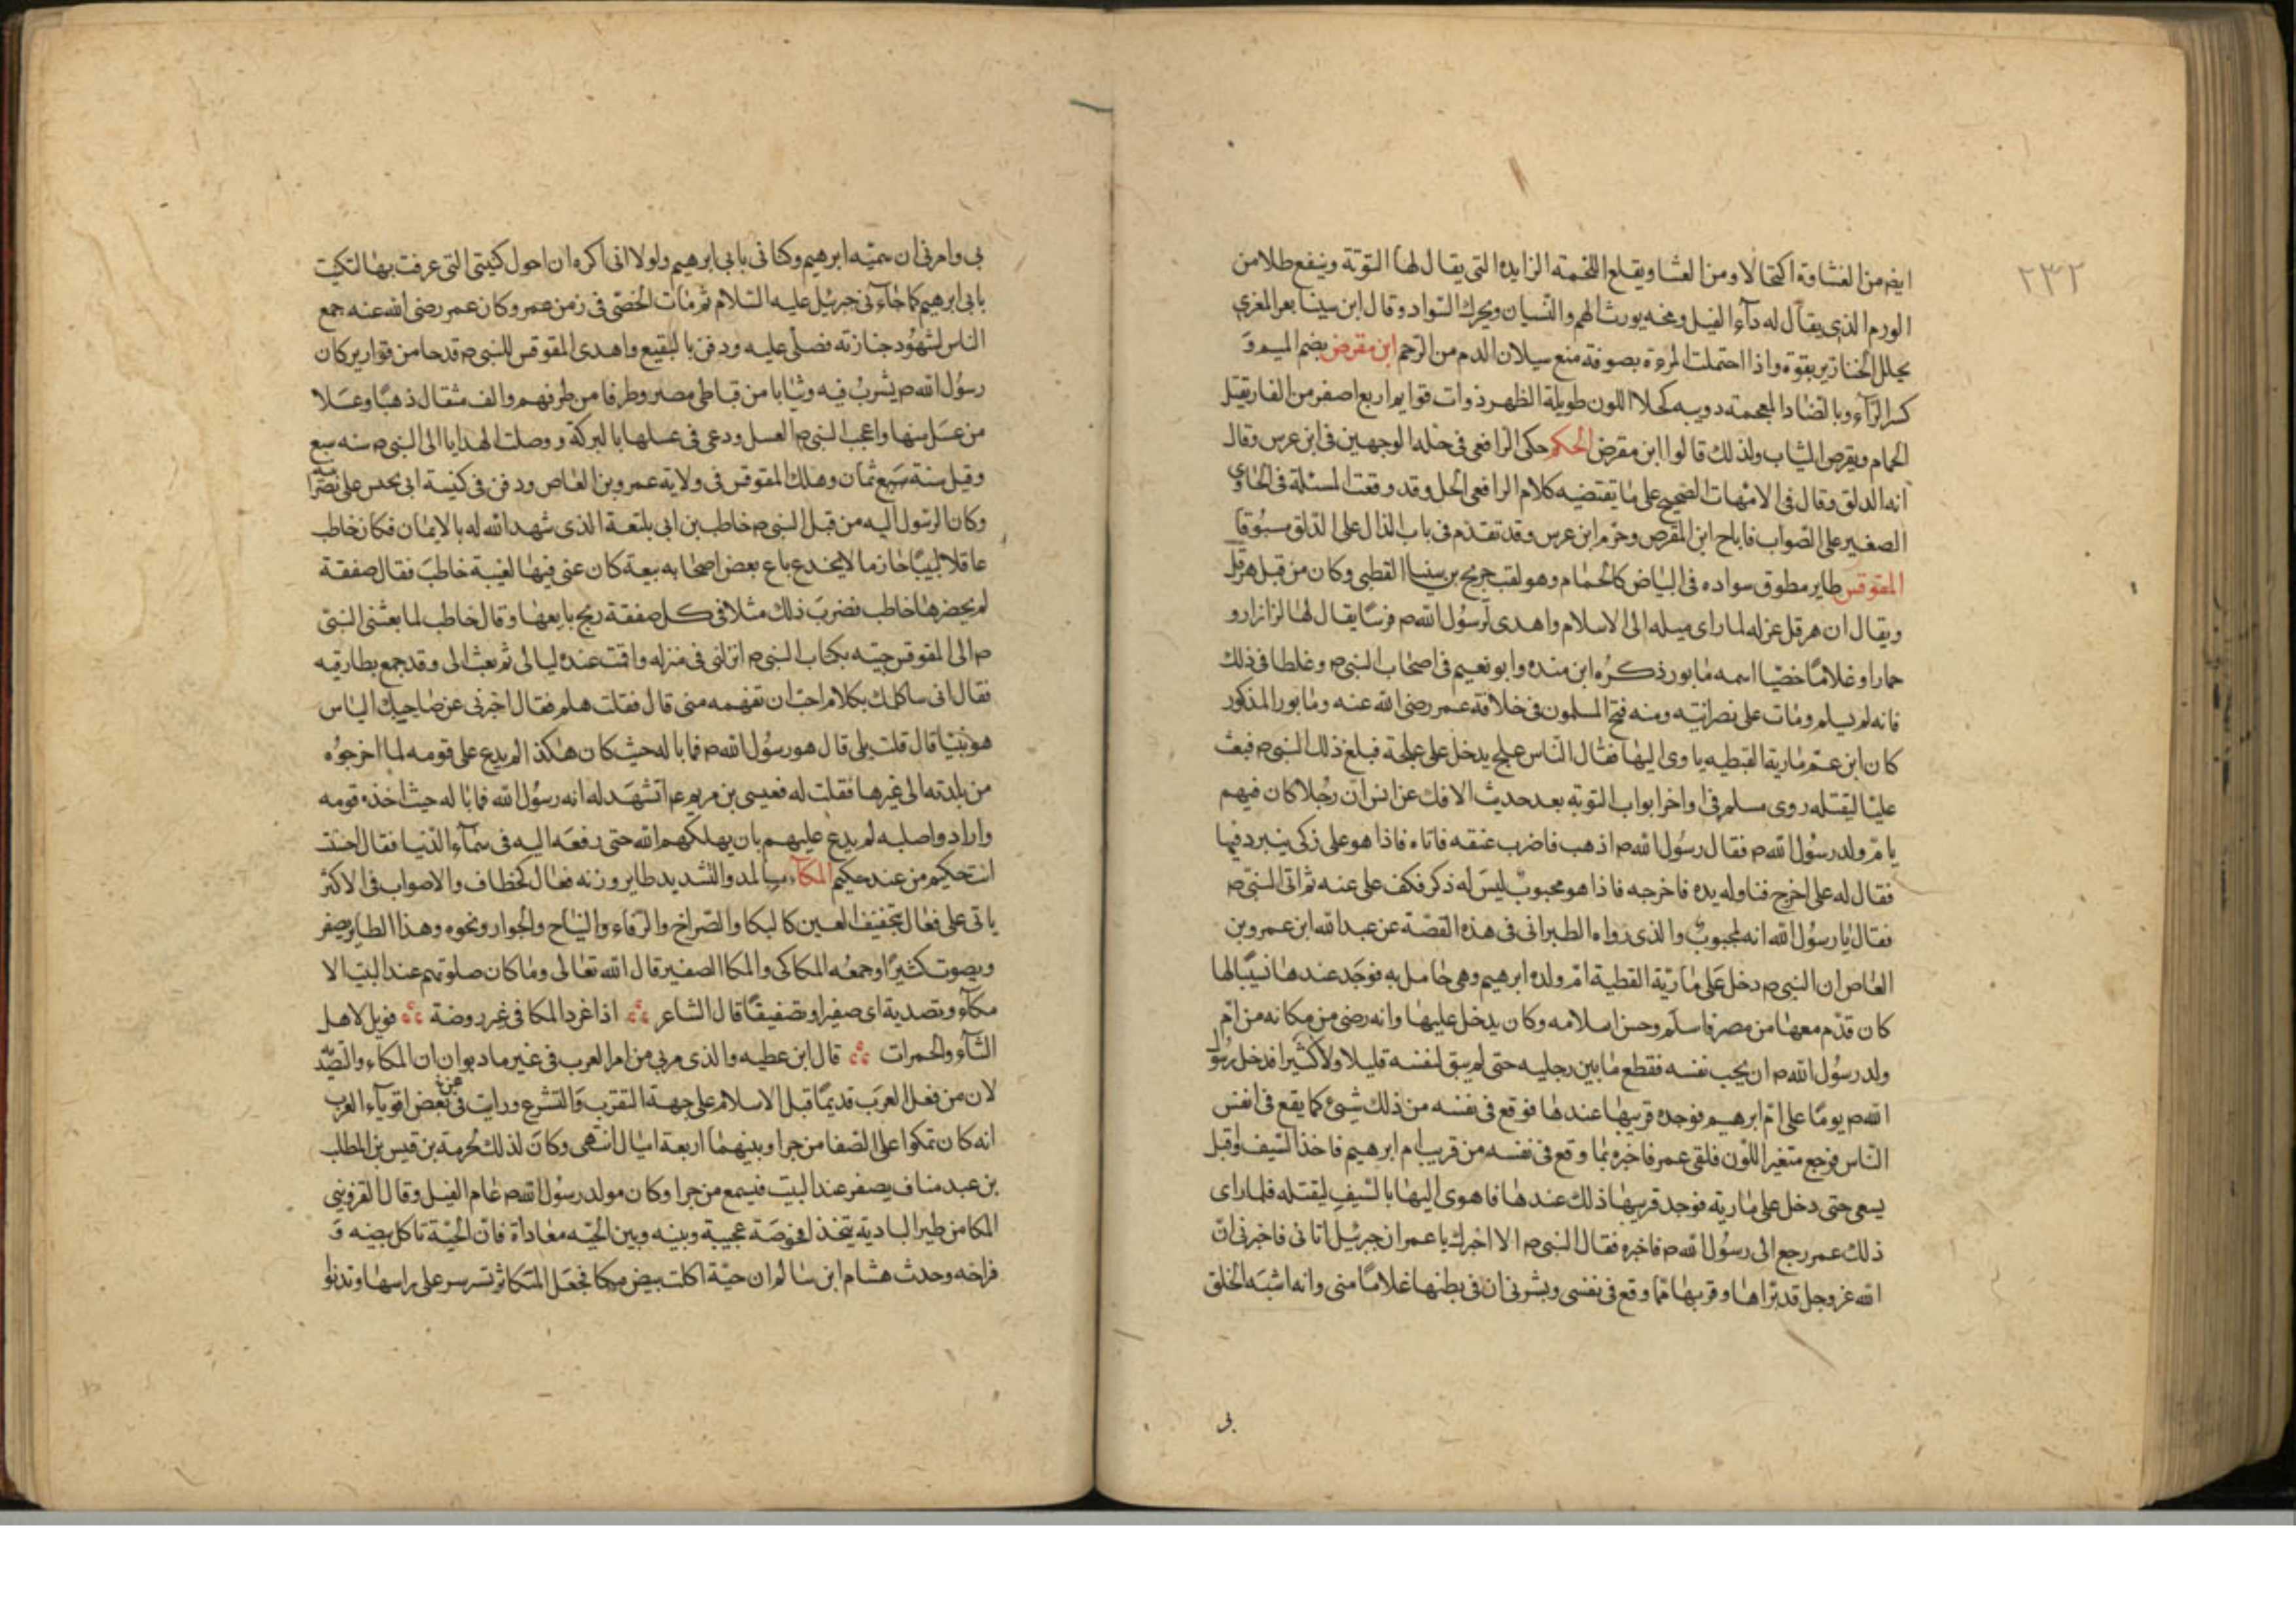 ٢٣٢
ايض من الغشاوة اكتحالا ومن العشا ويقلع اللخمة الزايدة التى يقال لها التوتة وينفع طلا من
الورم الذى يقال له دآء الفيل ومخه يورث الهم والنسيان ويحرك السواد وقال ابن سينا بعر المعزى
يحلل الخنازير بقوة واذا احتملت المرءة بصوفة منع سيلان الدم من الرحم ابن مقرض بضم الميم وَ
كسر الرآء وبالضاد المعجمة دويبه كحلا اللون طويلة الظهر ذوات قوايم اربع اصغر من الفار يقتل
الحمام ويقرض الثياب ولذلك قالوا ابن مقرض الحكم حكى الرافعى فى حله الوجهين فى ابن عرس وقال
انه الدلق وقال فى الامهات الصحيح على ما يقتضيه كلام الرافعى الحل وقد وقعت المسئلة فى الحاوى
الصغير على الصواب فاباح ابن المقرض وحرم ابن عرس وقد تقدم فى باب الدال على الدلق مسبُوقا
المقوقس طاير مطوق سواده فى البياض كالحمام وهو لقب جريج بن مينا القطبى وكان من قبل هرقل
ويقال ان هرقل عزله لما راى ميله الى الاسلام واهدى لرسُول الله ص فرسًا يقال لها لزاز او
حمارا وغلامًا خصيّا اسمه مابور ذكره ابن منده وابو نعيم فى اصحاب النبى ص وغلطا فى ذلك
فانه لم يسلم ومات على نصرانيته ومنه فتح المسلمون فى خلافة عمر رضى الله عنه ومابور المذكور
كان ابن عمّ مارية القبطيه ياوى اليها فقال الناس علج يدخل على علجة فبلغ ذلك النبى ص فبعث
عليّا ليقتله روى مسلم فى اواخر ابواب التوبه بعد حديث الافك عن انس ان رجُلا كان فيهم
يام ولد رسُول الله ص فقال رسُول الله ص اذهب فاضرب عنقه فاتاه فاذا هو على زكى يتبرد فيها
فقال له على اخرج فناوله يده فاخرجه فاذا هو مجبوب ليس له ذكر فكف على عنه ثم اتى النبى ص
فقال يا رسُول الله انه لمجبوب والذى رواه الطبرانى فى هذه القصّة عن عبد الله ابن عمرو بن
العاص ان النبى ص دخل على مارية القطبية ام ولده ابرهيم وهى حامل به فوجد عندها نسيبًا لها
كان قدم معها من مصر فاسلم وحسن اسلامه وكان يدخل عليها وانه رضى من مكانه من امّ
ولد رسُول الله ص ان يجب نفسه فقطع ما بين رجليه حتى لم يبق لنفسه قليلا ولا كثيرا فدخل رسُول
الله ص يومًا على ام ابرهيم فوجده قريبها عندها فوقع فى نفسه من ذلك شئ كما يقع فى انفس
النّاس فرجع متغير اللّون فلقى عمر فاخبره بما وقع فى نفسه من قريب ام ابرهيم فاخذ السّيف واقبل
يسعى حتى دخل على مارية فوجد قريبها ذلك عندها فاهوى اليها بالسّيف ليقتله فلما راى
ذلك عمر رجع الى رسُول الله ص فاخبره فقال النبى ص الا اخبرك يا عمر ان جبرئيل اتانى فاخبرنى انّ
الله عز وجل قد براها وقريبها مما وقع فى نفسى وبشرنى ان فى بطنها غلامًا منى وانه اشبه الخلق
بى
بى وامرنى ان سميّه ابرهيم وكنانى بابى ابرهيم ولولا انى اكره ان احول كنيتى التى عرفت بها لتكنيت
بابى ابرهيم كما جاءنى جبرئيل عليه السّلام ثم مات الخصّى فى زمن عمر وكان عمر رضى الله عنه جمع
الناس لشهُود جنازته فصلّى عليه ودفن بالبقيع واهدى المقوقس للنبى ص قدحا من قوارير كان
رسُول الله ص يشربُ فيه وثيابا من قباطى مصر وطرفا من طرفهم والف مثقال ذهبًا وعسلا
من عسل بنها واعجب النبى ص العسل ودعى فى عسلها بالبركة ووصلت الهدايا الى النبى ص سنه سبع
وقيل سنة سبع ثمان وهلك المقوقس فى ولاية عمرو بن العاص ودفن فى كنيسة ابى يحنس على نصرانيته
وكان الرسُول اليه من قبل النبى ص خاطب بن ابى بلتعة الذى شهد الله له بالايمان فكان خاطب
عاقلا لبيبًا حازما لا يخدع باع بعض اصحابه بيعة كان عنى فيها لغيبة خاطب فقال صفقة
لم يحضرها خاطب فضرب ذلك مثلا فى كل صفقة ربح بايعها وقال خاطب لما بعثنى النبى
ص الى المقوقس جيته بكتاب النبى ص انزلنى فى منزله واقمت عنده ليالى ثم بعث الى وقد جمع بطارقيه
فقال انى ساكلمك بكلام احبّ ان تفهمه منى قال فقلت هلم فقال اخبرنى عن صاحبك الياس
هو نبيّا قال قلت بلى قال هو رسُول الله ص فما باله حيث كان هكذا لم يدع على قومه لما اخرجُوه
من بلدته الى غيرها فقلت له فعيسى بن مريم عم اتشهد له انه رسُول الله فما باله حيث اخذه قومه
وارادوا صلبه لم يدع عليهم بان يهلكهم الله حتى رفعه اليه فى سمآء الدّنيا فقال احسنت
انت حكيم من عند حكيم المكآء بالمد والتشديد طاير وزنه فعال كخطاف والاصواب فى الاكثر
ياتى على فعال بتخفيف العين كالبكا والصّراخ والرّغاء والنياح والجوار ونحوه وهذا الطاير يصفر
ويصوت كثيرًا وجمعُه المكاكى والمكا الصفير قال الله تعالى وما كان صلوتهم عند البيت الا
مكآء وتصدية اى صفيرا وتصفيقًا قال الشاعر اذا غرد المكا فى غير روضة فويل لاهل
الشآء والحمرات قال ابن عطيه والذى مر بى من امر العرب فى غير ما ديوان ان المكاء والتصّد
لان من فعل العرب قديمًا قبل الاسلام على جهة التقرب والتشرع ورايت فى عن بعض اقويآء العرب
انه كان تمكوا على الصّفا من حرا وبينهما اربعة اميال انتهى وكان لذلك مُخرمة بن قيس بن المطلب
بن عبد مناف يصفر عند البيت فيسمع من حرا وكان مولد رسُول الله ص عام الفيل وقال القزوينى
المكا من طير الباديه يتخذ افحوصَة عجيبة وبينه وبين الحيّه معاداة فان الحيّة تاكل بيضه وَ
فراخه وحدث هشام ابن سالم ان حيّة اكلت بيض مكا فجعل المكا يشرشر على راسها وتدنوا